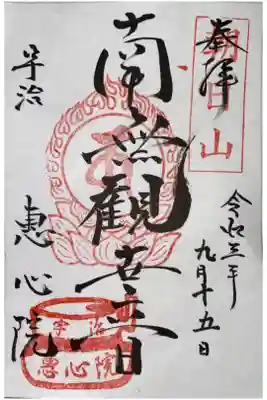 奉拝
朝日山
令和三年
九月十五日
南無観世音
宇治
恵心院
宇治
恵心院